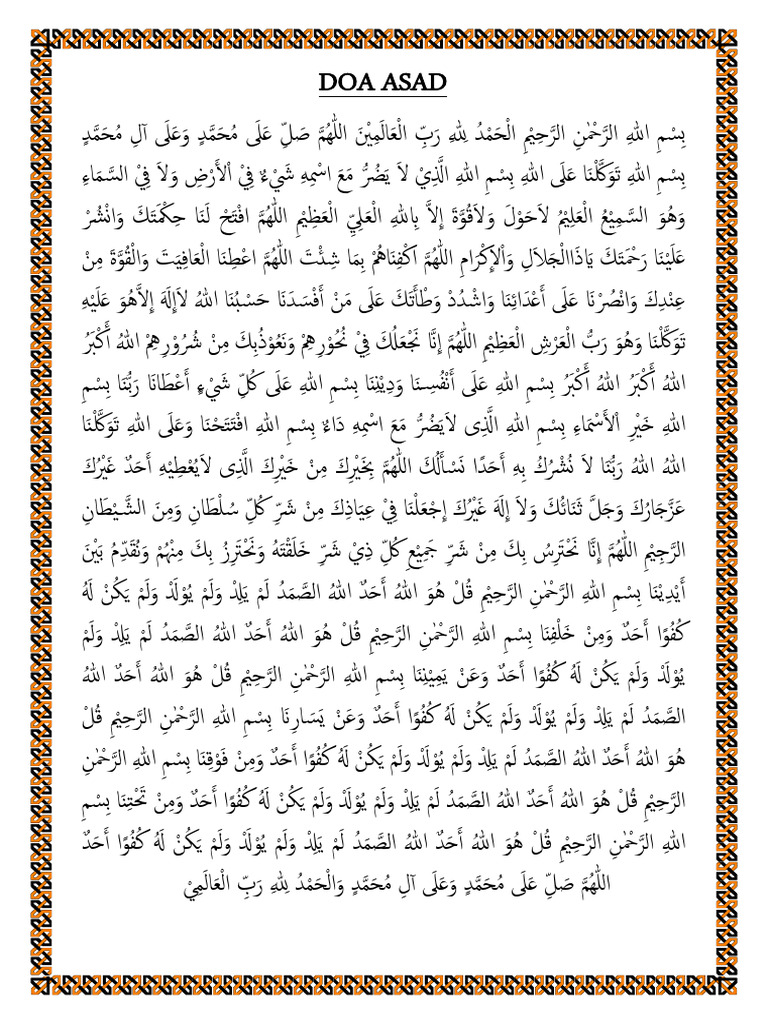 DOA ASAD
بِسْمِ اللهِ الرَّحْمٰنِ الرَّحِيْمِ الْحَمْدُ لِلهِ رَبِّ الْعَالَمِيْنَ اللّٰهُمَّ صَلِّ عَلَى مُحَمَّدٍ وَعَلَى آلِ مُحَمَّدٍ
بِسْمِ اللهِ تَوَكَّلْنَا عَلَى اللهِ بِسْمِ اللهِ الَّذِيْ لاَ يَضُرُّ مَعَ اسْمِهِ شَيْءٌ فِيْ اْلأَرْضِ وَلاَ فِيْ السَّمَاءِ
وَهُوَ السَّمِيْعُ الْعَلِيْمُ لاَحَوْلَ وَلاَقُوَّةَ إِلاَّ بِاللهِ الْعَلِيِّ الْعَظِيْمِ اللّٰهُمَّ افْتَحْ لَنَا حِكْمَتَكَ وَانْشُرْ
عَلَيْنَا رَحْمَتَكَ يَاذَاالْجَلاَلِ وَاْلإِكْرَامِ اللّٰهُمَّ اكْفِنَاهُمْ بِمَا شِئْتَ اللّٰهُمَّ اعْطِنَا الْعَافِيَتَ وَالْقُوَّةَ مِنْ
عِنْدِكَ وَانْصُرْنَا عَلَى أَعْدَائِنَا وَاشْدُدْ وَطْأَتَكَ عَلَى مَنْ أَفْسَدَنَا حَسْبُنَا اللهُ لاَإِلَهَ إِلاَّهُوَ عَلَيْهِ
تَوَكَّلْنَا وَهُوَ رَبُّ الْعَرْشِ الْعَظِيْمِ اللّٰهُمَّ إِنَّا نَجْعَلُكَ فِيْ نُحُوْرِهِمْ وَنَعُوْذُبِكَ مِنْ شُرُوْرِهِمْ اللهُ أَكْبَرُ
اللهُ أَكْبَرُ اللهُ أَكْبَرُ بِسْمِ اللهِ عَلَى أَنْفُسِنَا وَدِيْنِنَا بِسْمِ اللهِ عَلَى كُلِّ شَيْءٍ أَعْطَانَا رَبُّنَا بِسْمِ
اللهِ خَيْرِ اْلأَسْمَاءِ بِسْمِ اللهِ الَّذِى لاَيَضُرُّ مَعَ اسْمِهِ دَاءٌ بِسْمِ اللهِ افْتَتَحْنَا وَعَلَى اللهِ تَوَكَّلْنَا
اللهُ اللهُ رَبُّنَا لاَ نُشْرُكُ بِهِ أَحَدًا نَسْأَلُكَ اللّٰهُمَّ بِخَيْرِكَ مِنْ خَيْرِكَ الَّذِى لاَيُعْطِيْهِ أَحَدٌ غَيْرُكَ
عَزَّجَارُكَ وَجَلَّ ثَنَائُكَ وَلاَ إِلَهَ غَيْرُكَ إِجْعَلْنَا فِيْ عِيَاذِكَ مِنْ شَرِّ كُلِّ سُلْطَانٍ وَمِنَ الشَّيْطَانِ
الرَّجِيْمِ اللّٰهُمَّ إِنَّا نَحْتَرِسُ بِكَ مِنْ شَرِّ جَمِيْعِ كُلِّ ذِيْ شَرِّ خَلَقْتَهُ وَنَحْتَرِزُ بِكَ مِنْهُمْ وَنُقَدِّمُ بَيْنَ
أَيْدِيْنَا بِسْمِ اللهِ الرَّحْمٰنِ الرَّحِيْمِ قُلْ هُوَ اللهُ أَحَدٌ اللهُ الصَّمَدُ لَمْ يَلِدْ وَلَمْ يُوْلَدْ وَلَمْ يَكُنْ لَهُ
كُفُوًا أَحَدٌ وَمِنْ خَلْفِنَا بِسْمِ اللهِ الرَّحْمٰنِ الرَّحِيْمِ قُلْ هُوَ اللهُ أَحَدٌ اللهُ الصَّمَدُ لَمْ يَلِدْ وَلَمْ
يُوْلَدْ وَلَمْ يَكُنْ لَهُ كُفُوًا أَحَدٌ وَعَنْ يَمِيْنِنَا بِسْمِ اللهِ الرَّحْمٰنِ الرَّحِيْمِ قُلْ هُوَ اللهُ أَحَدٌ اللهُ
الصَّمَدُ لَمْ يَلِدْ وَلَمْ يُوْلَدْ وَلَمْ يَكُنْ لَهُ كُفُوًا أَحَدٌ وَعَنْ يَسَارِنَا بِسْمِ اللهِ الرَّحْمٰنِ الرَّحِيْمِ قُلْ
هُوَ اللهُ أَحَدٌ اللهُ الصَّمَدُ لَمْ يَلِدْ وَلَمْ يُوْلَدْ وَلَمْ يَكُنْ لَهُ كُفُوًا أَحَدٌ وَمِنْ فَوْقِنَا بِسْمِ اللهِ الرَّحْمٰنِ
الرَّحِيْمِ قُلْ هُوَ اللهُ أَحَدٌ اللهُ الصَّمَدُ لَمْ يَلِدْ وَلَمْ يُوْلَدْ وَلَمْ يَكُنْ لَهُ كُفُوًا أَحَدٌ وَمِنْ تَحْتِنَا بِسْمِ
اللهِ الرَّحْمٰنِ الرَّحِيْمِ قُلْ هُوَ اللهُ أَحَدٌ اللهُ الصَّمَدُ لَمْ يَلِدْ وَلَمْ يُوْلَدْ وَلَمْ يَكُنْ لَهُ كُفُوًا أَحَدٌ
اللّٰهُمَّ صَلِّ عَلَى مُحَمَّدٍ وَعَلَى آلِ مُحَمَّدٍ وَالْحَمْدُ لِلهِ رَبِّ الْعَالَمِيْ